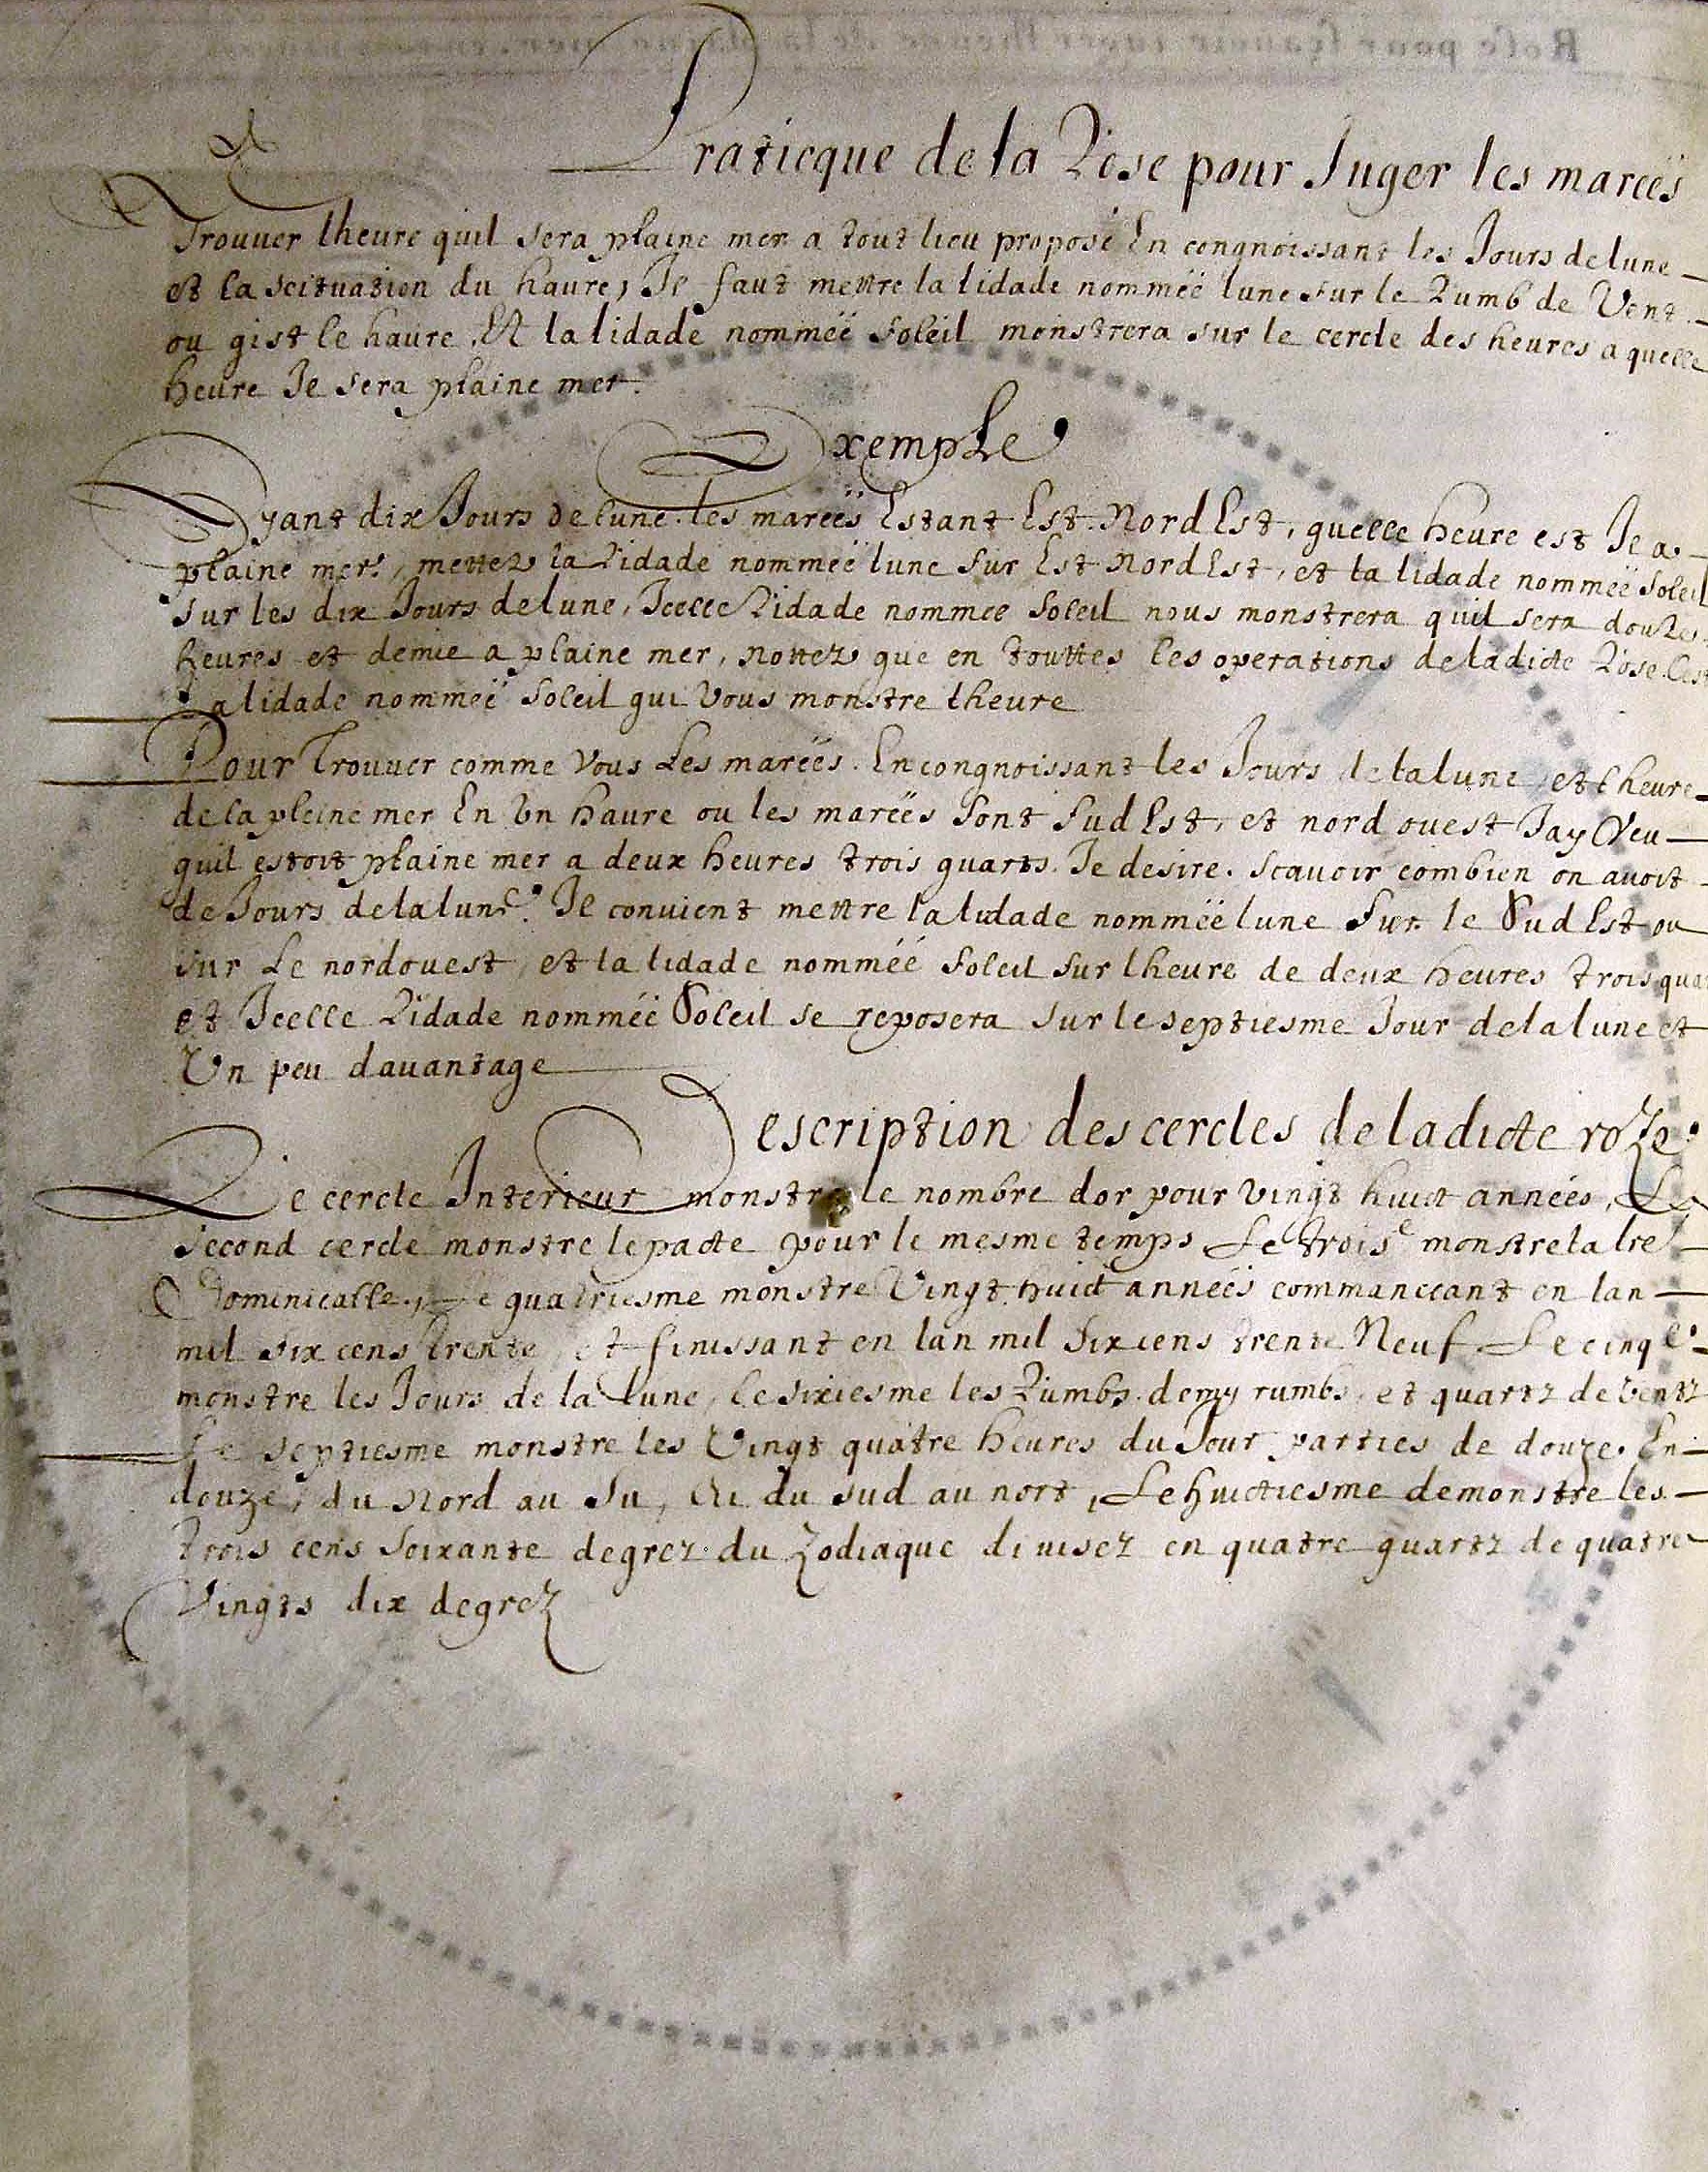 Praticque de la Rose pour Juger les mareës
Trouuer lheure quil sera plaine mer a tout lieu proposé En congnoissant les Jours de lune
et la scituation du haure, Il faut mettre la lidade nommëë lune sur le Rumb de Vent
ou gist le haure. Et la lidade nommëë soleil monstrera sur le cercle des heures a quelle
heure Il sera plaine mer.
Exemple
Ayant dix Jours de lune. les mareës Estant Est. Nord Est, quelle heure est Il a
plaine mer, mettez la Lidade nommëë lune sur Est Nord Est, et la lidade nommëë soleil
sur les dix Jours de lune, Icelle Lidade nommee soleil nous monstrera quil sera douze
heures et demie a plaine mer, nottez que en touttes les operations de ladicte Rose Cest
Lalidade nommëë soleil qui Vous monstre lheure
Pour Trouuer comme Vous Les mareës. En congnoissant les Jours de la lune et lheure
de la pleine mer En Un haure ou les mareës sont Sud Est, et nord ouest Jay Veu
quil estoit plaine mer a deux heures trois quarts. Je desire. scauoir combien on auoit
de Jours de la lune. Il conuient mettre la lidade nommëë lune sur le Sud Est ou
sur Le nordouest, et la lidade nomméé soleil sur lheure de deux heures trois qua
et Icelle Lidade nommëë Soleil se reposera sur le septiesme Jour de la lune et
Un peu dauantage
Description des cercles de ladicte roze.
Le cercle Interieur monstre le nombre dor pour vingt huict années, Le
second cercle monstre lepacte pour le mesme temps Le troise monstre la lre
Dominicalle, Le quatriesme monstre Vingt huict anneës commanccant en lan
mil six cens trente, et finissant en lan mil Six cens trente Neuf Le cinqe.
monstre les Jours de la lune, le sixiesme les Rumbs. demy rumbs, et quartz de ventz
Le septiesme monstre les Vingt quatre heures du Jour parties de douze. En
douze, du Nord au Su, Et du sud au nort, Le huictiesme demonstre les
trois cens soixante degrez du Zodiaque diuisez en quatre quartz de quatre
Vingts dix degrez